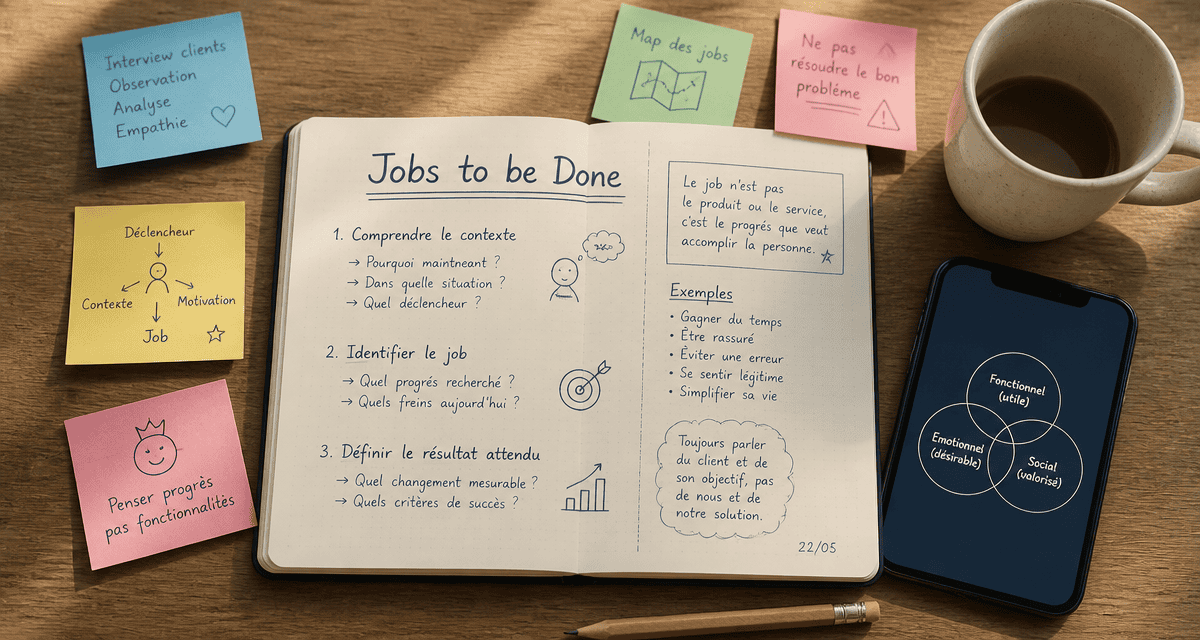 Interview clients
Observation
Analyse
Empathie
Map des jobs
Ne pas
résoudre le bon
probléme
Déclencheur
Contexte
Motivation
Job
Penser progrès
pas fonctionnalités
Jobs to be Done
1. Comprendre le contexte
→ Pourquoi mainteneant ?
→ Dans quelle situation ?
→ Quel déclencheur ?
2. Identifier le job
→ Quel progrés recherché ?
→ Quels freins aujourd'hui ?
3. Définir le résultat attendu
→ Quel changement mesurable ?
→ Quels critères de succès ?
Le job n'est pas
le produit ou le service,
c'est le progrés que veut
accomplir la personne.
Exemples
• Gagner du temps
• Être rassuré
• Éviter une erreur
• Se sentir légitime
• Simplifier sa vie
Toujours parler
du client et de
son objectif, pas
de nous et de
notre solution.
22/05
Fonctionnel
(utile)
Emotionnel
(désirable)
Social
(valorisé)